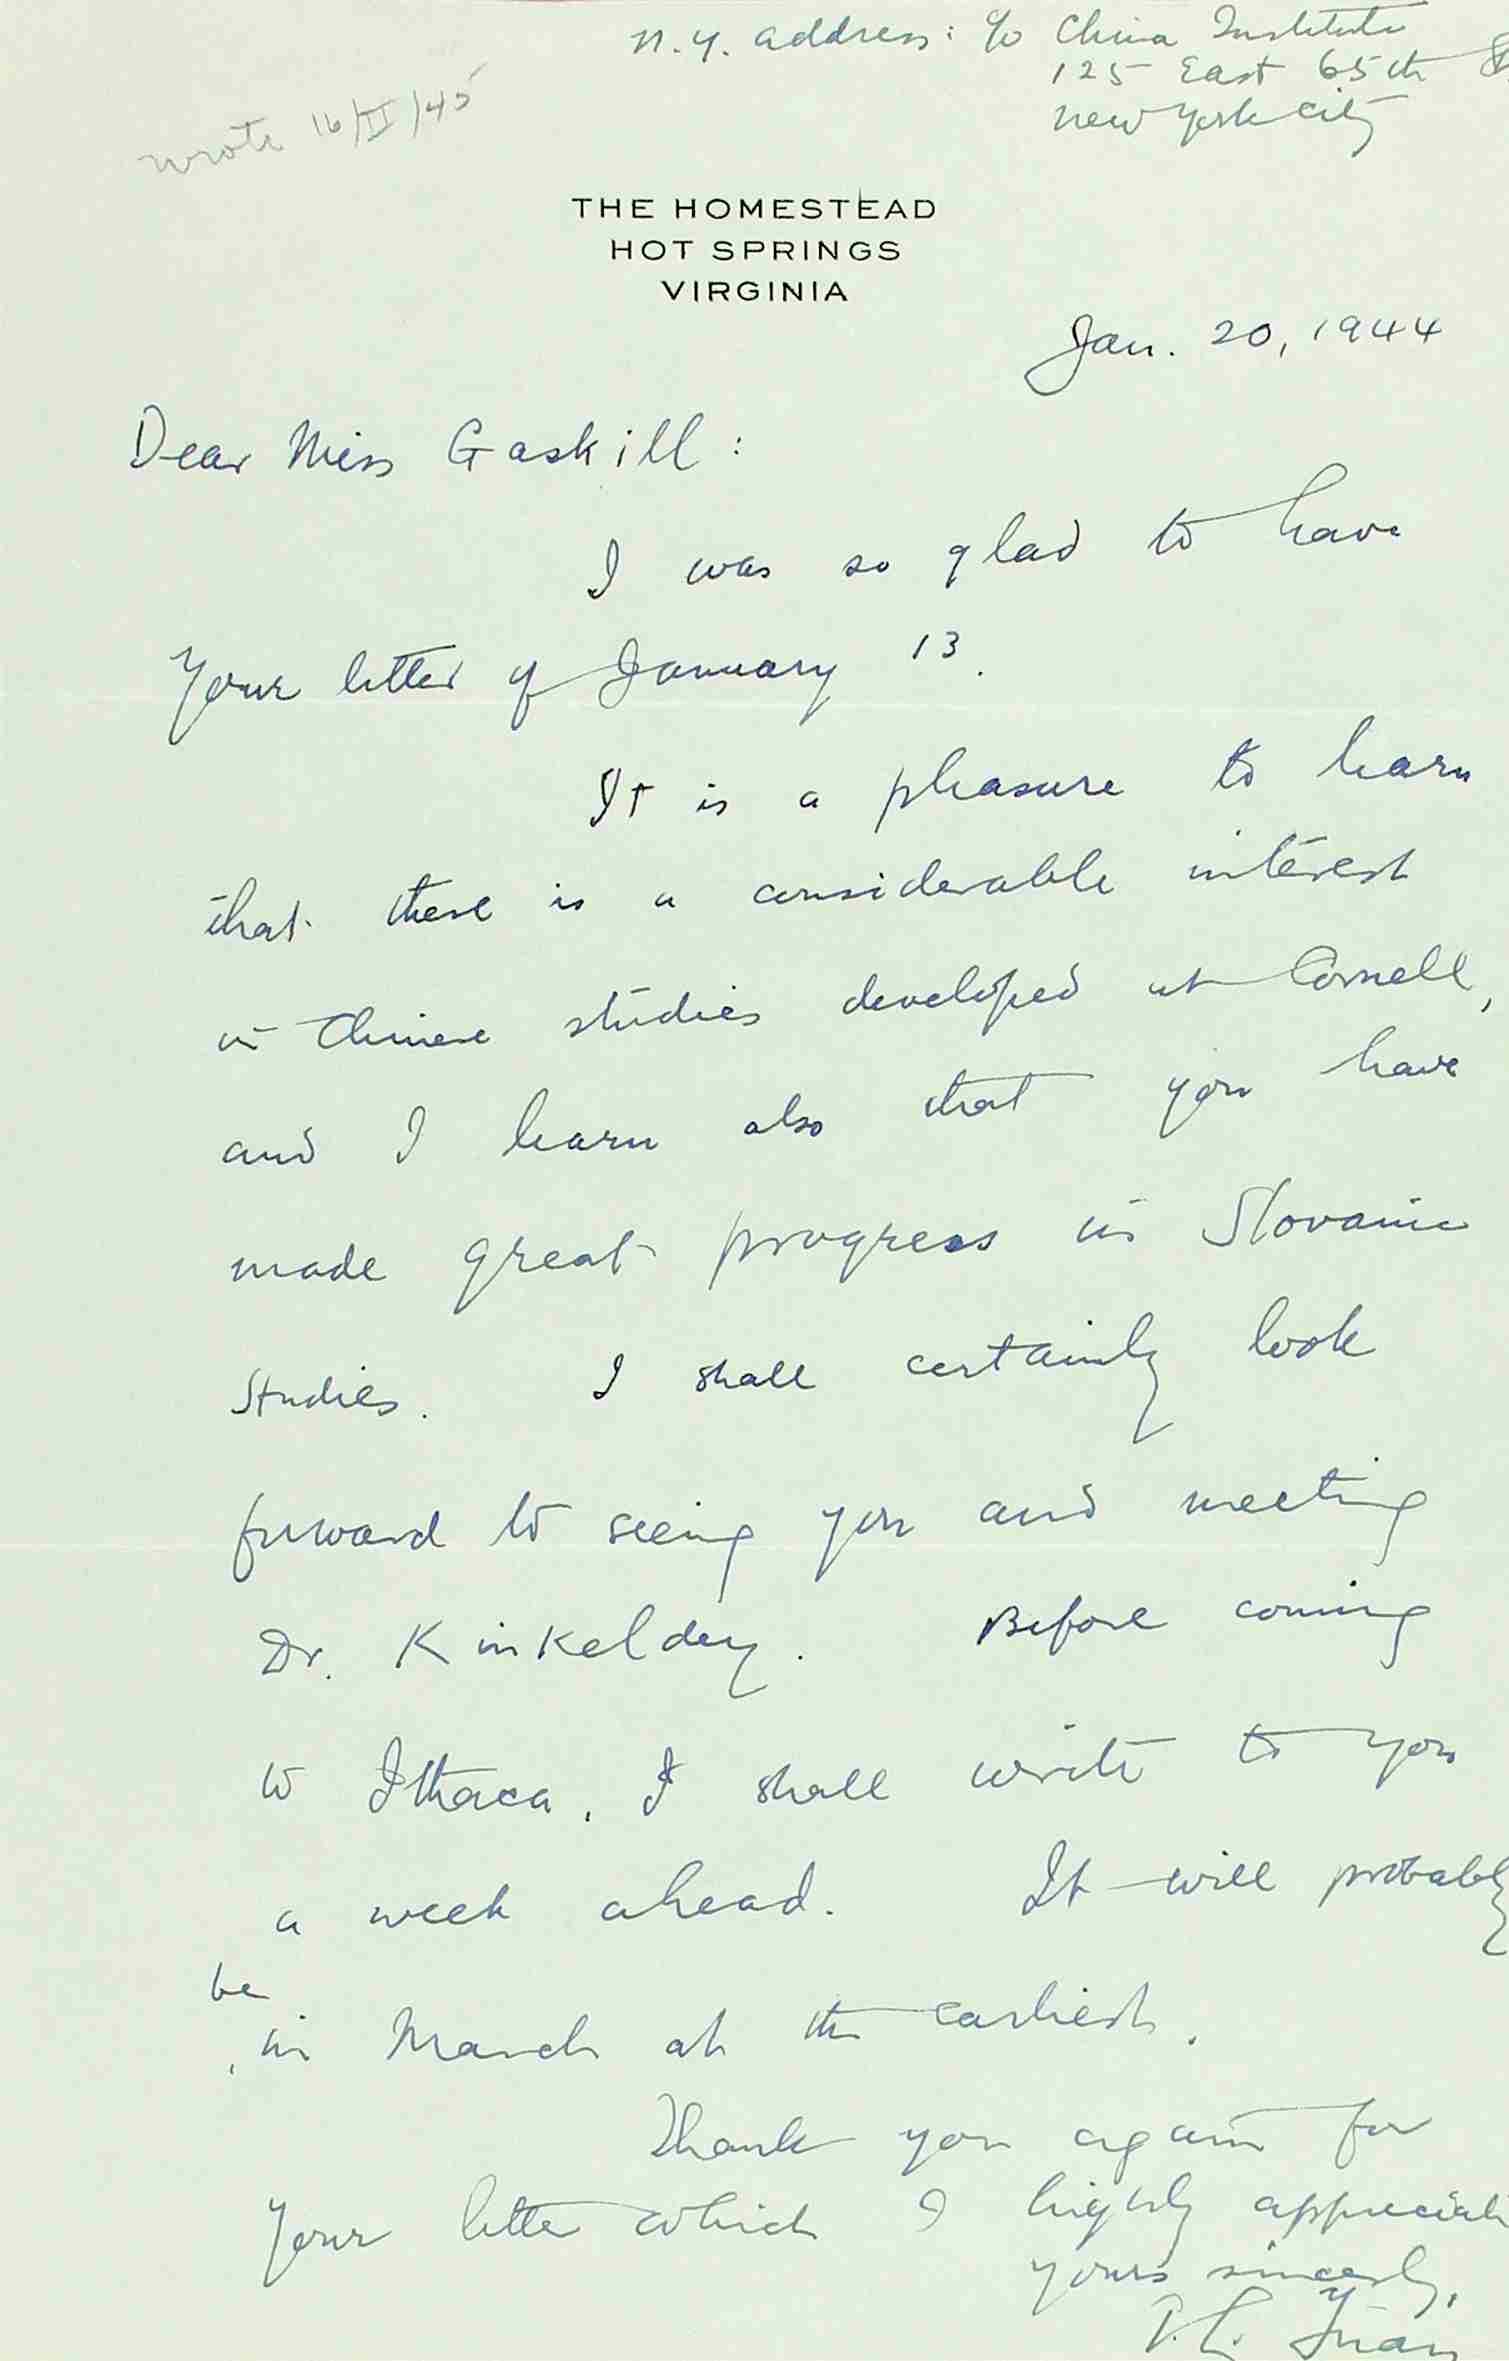 N.Y. address: c/o China Institute
125 East 65th St.
New York City
wrote 16/II/45
THE HOMESTEAD
HOT SPRINGS
VIRGINIA
Jan. 20, 1944
Dear Miss Gaskill:
I was so glad to have
your letter of January 13.
It is a pleasure to learn
that there is a considerable interest
in Chinese studies developed at Cornell,
and I learn also that you have
made great progress in Slovanic
Studies. I shall certainly look
forward to seeing you and meeting
Dr. Kinkeldey. Before coming
to Ithaca, I shall write to you
a week ahead. It will probably
be
in March at the earliest.
Thank you again for
your letter which I highly appreciate
yours sincerely,
T. L. Yuan